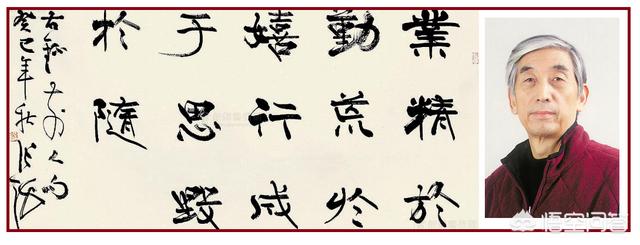 業精於
勤荒於
嬉行成
于思毀
於隨
癸巳年秋 张海
悟空问答